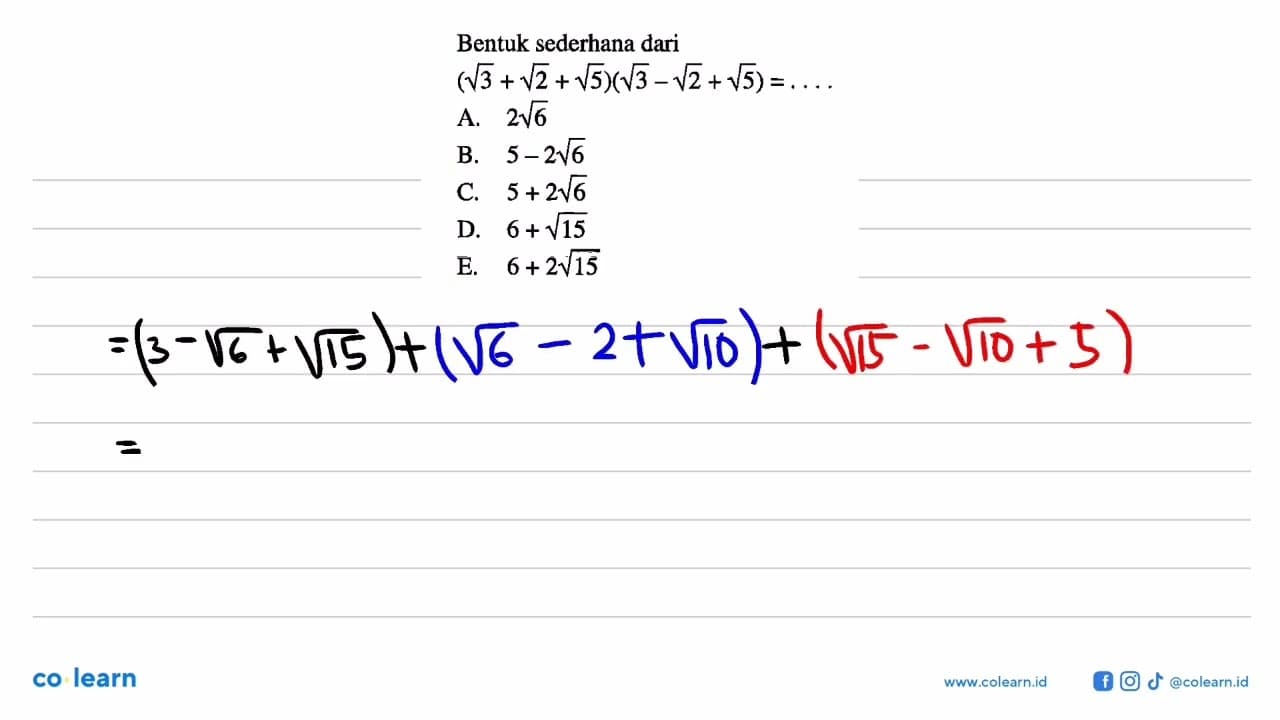 Bentuk sederhana dari
(√3 + √2 + √5)(√3 – √2 + √5) = . . . .
A. 2√6
B. 5 – 2√6
C. 5 + 2√6
D. 6 + √15
E. 6 + 2√15
= (3 – √6 + √15) + (√6 – 2 + √10) + (√15 – √10 + 5)
=
co·learn
www.colearn.id @colearn.id